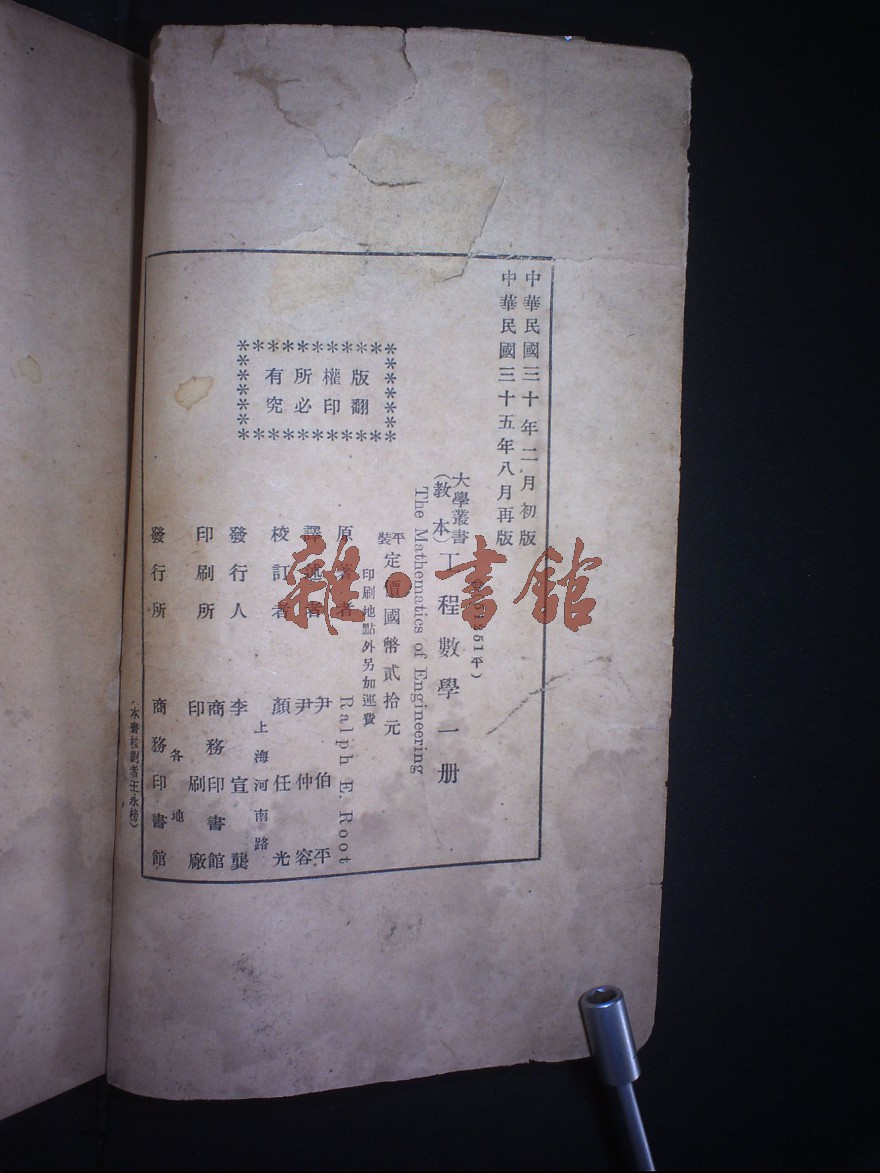 中華民國三十年二月初版
中華民國三十五年八月再版
351平）
大學叢書
（教本）
工程數學一册
The Mathematics of Engineering
平裝
定價國幣貳拾元
印刷地點外另加運費
版權所有
翻印必究
原著者 Ralph E. Root
譯述者 尹伯平 尹仲容
校訂者 顏任光
上海河南路
發行人 李宣龔
印刷所 商務印書館印刷廠
各地
發行所 商務印書館
（本書校對者王永榜）
雜·書館